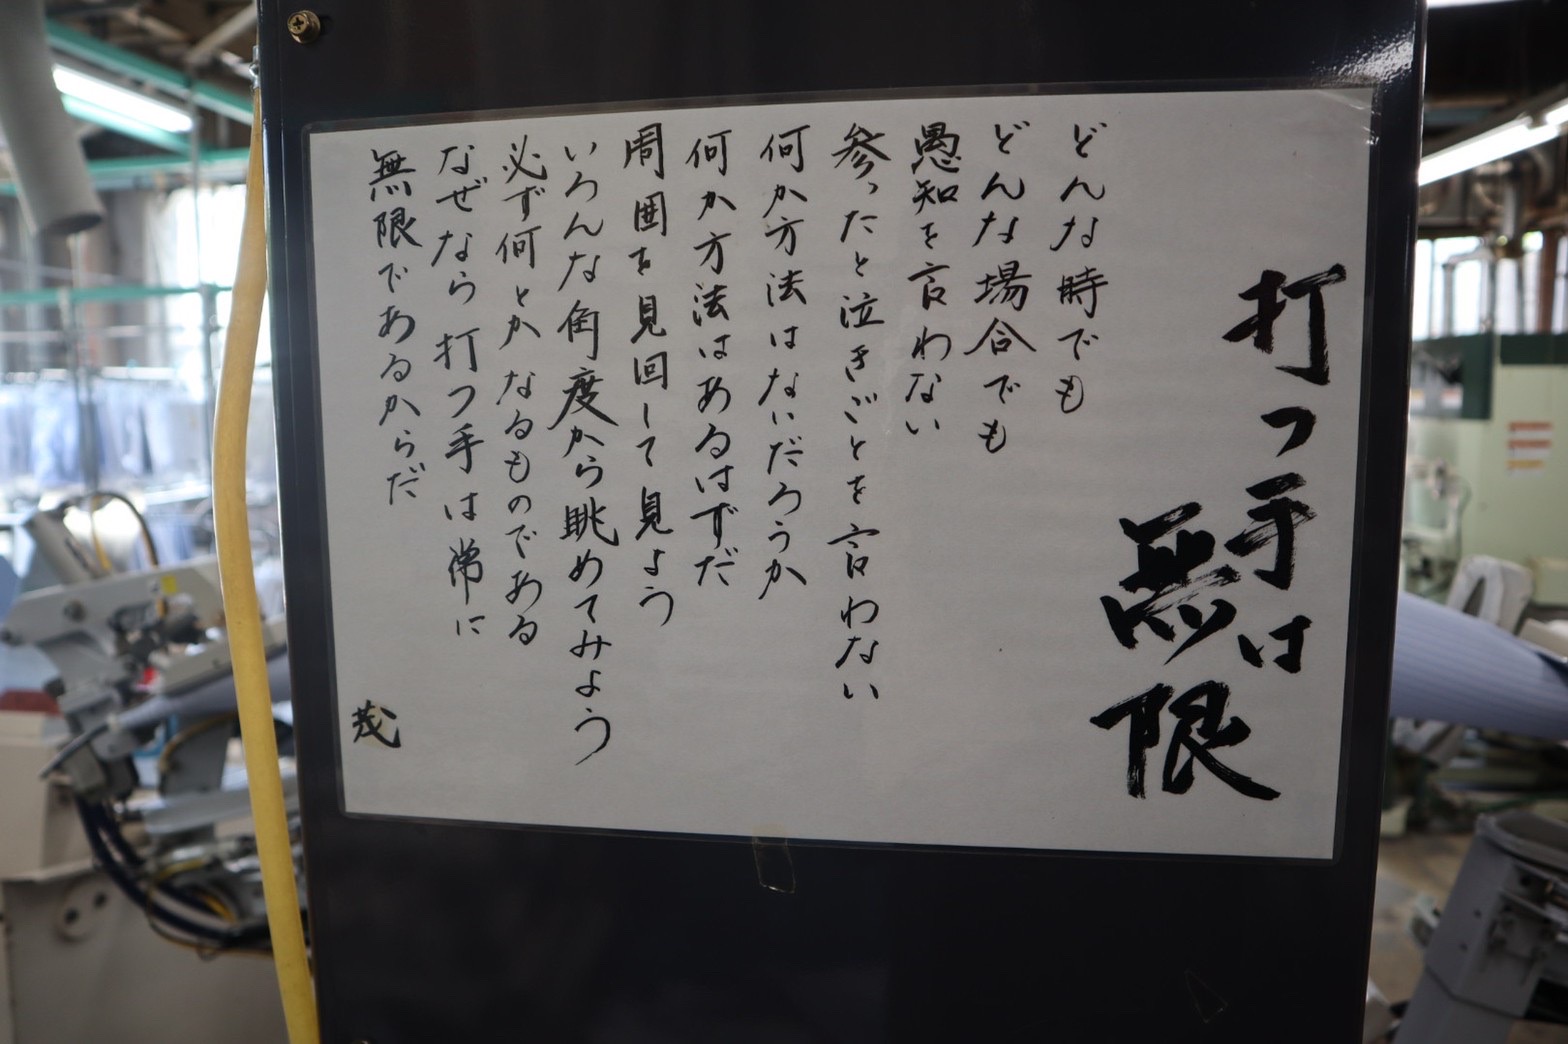 打つ手は
無限
どんな時でも
どんな場合でも
愚知を言わない
参ったと泣きごとを言わない
何か方法はないだろうか
何か方法はあるはずだ
周囲を見回して見よう
いろんな角度から眺めてみよう
必ず何とかなるものである
なぜなら打つ手は常に
無限であるからだ
茂